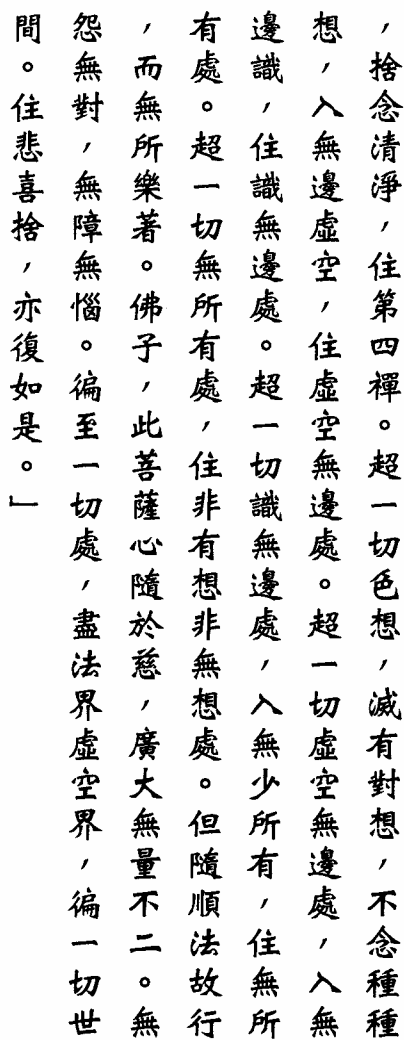 ，捨念清淨，住第四禪。超一切色想，滅有對想，不念種種
想，入無邊虛空，住虛空無邊處。超一切虛空無邊處，入無
邊識，住識無邊處。超一切識無邊處，入無少所有，住無所
有處。超一切無所有處，住非有想非無想處。但隨順法故行
，而無所樂著。佛子，此菩薩心隨於慈，廣大無量不二。無
怨無對，無障無惱。徧至一切處，盡法界虛空界，徧一切世
間。住悲喜捨，亦復如是。」